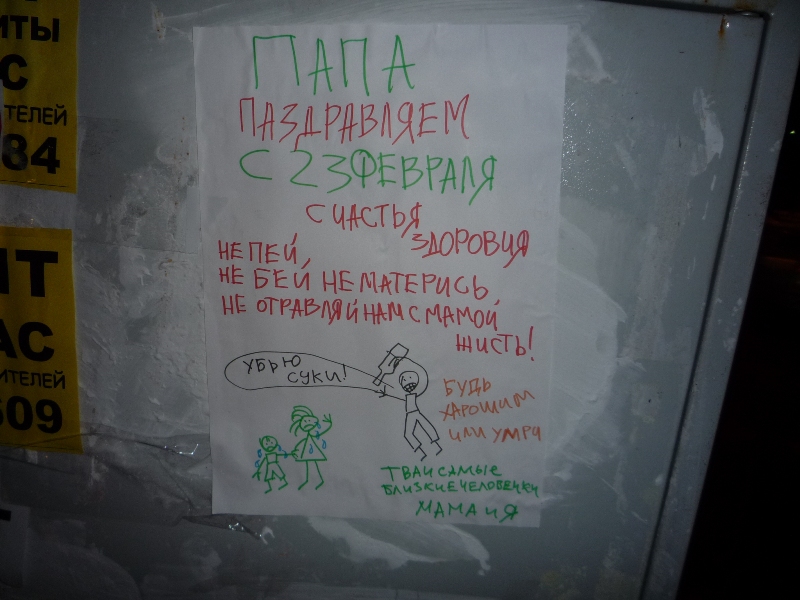 ИТЫ
С
ТЕЛЕЙ
84
ИТ
АС
ИТЕЛЕЙ
609
ПАПА
ПАЗДРАВЛЯЕМ
С 23 ФЕВРАЛЯ
СЧАСТЬЯ
ЗДОРОВЦЯ
НЕ ПЕЙ,
НЕ БЕЙ, НЕ МАТЕРИСЬ,
НЕ ОТРАВЛЯЙ НАМ С МАМОЙ
ЖИСТЬ!
УБЬЮ
СУКИ!
БУДЬ
ХАРОШИМ
ИЛИ УМРИ
ТВАИ САМЫЕ
БЛИЗКИЕ ЧЕЛОВЕЧКИ
МАМА И Я